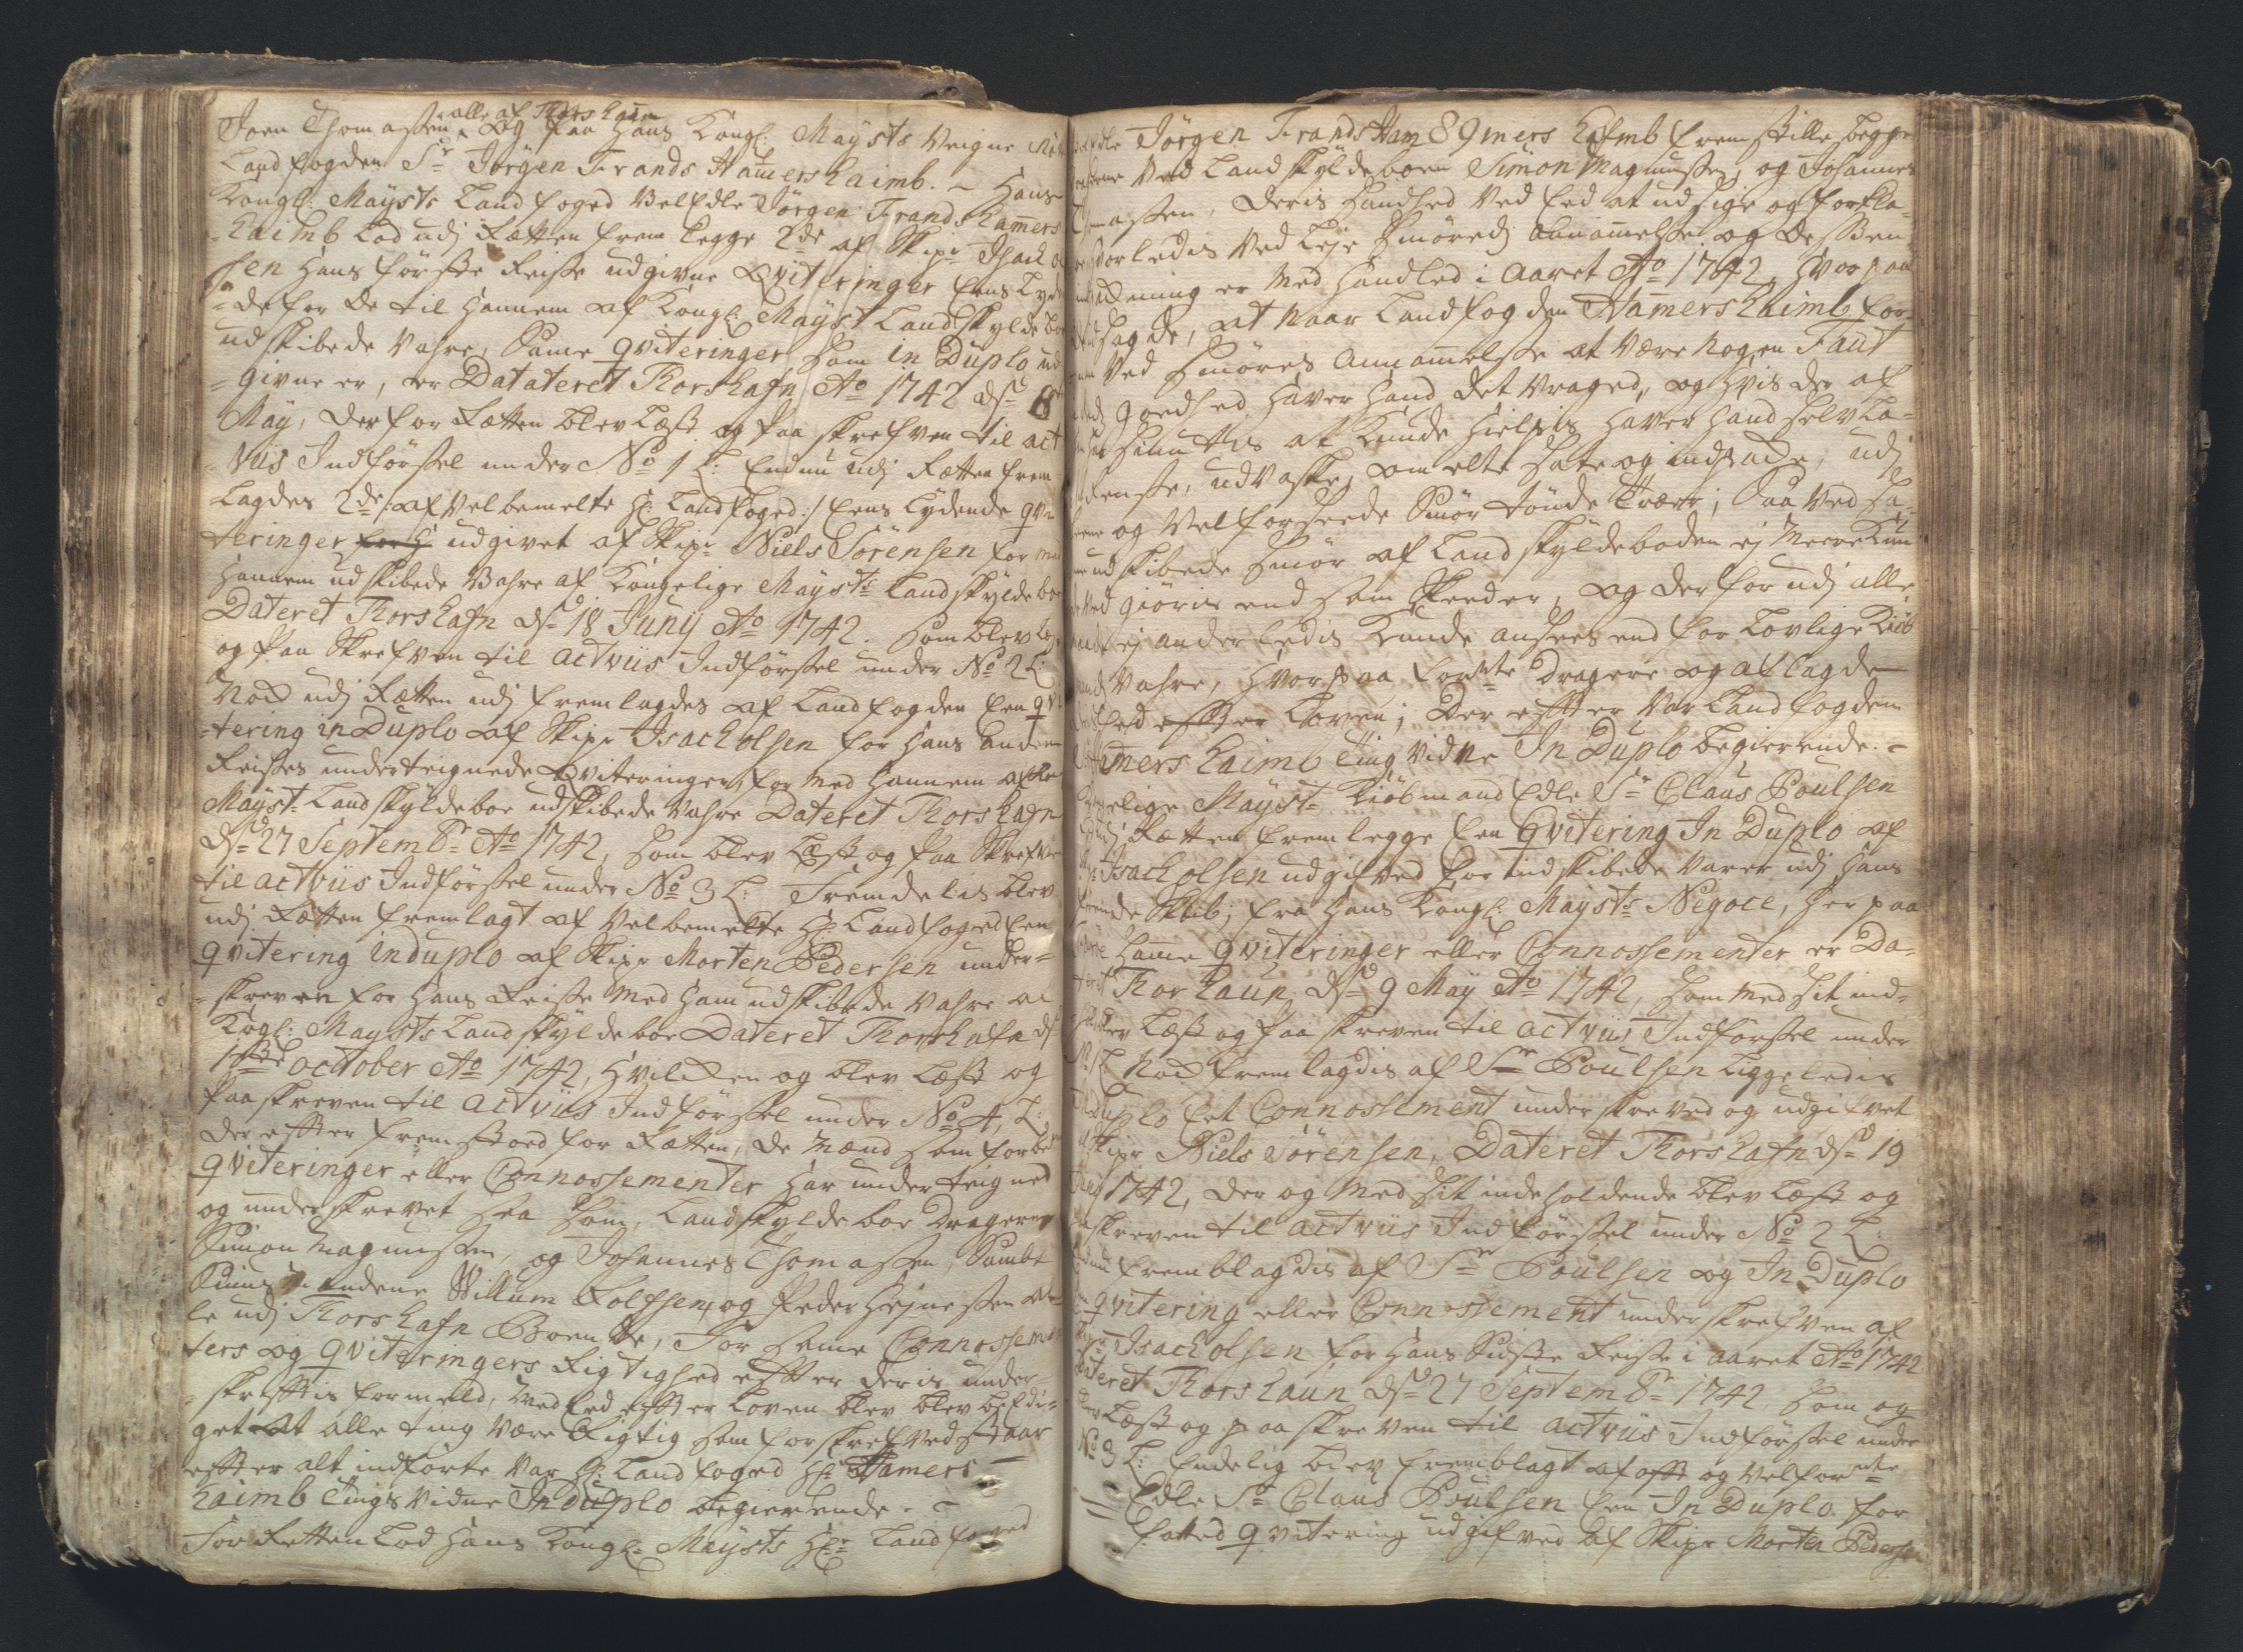 Joen Thomassen alle af Thorshaun og paa Hans Kongl: Maysts Veigne
Landfogden Sr Jörgen Frands Hamershaimb. - Hans
Kongl: Maysts Landfoged VelEdle Jörgen Frands Hamers
haimb lod udj Rætten frem legge 2de af Skipr Isach Ol
sen Hans förste Reise udgivne Qviteringer Eens Lyd
=de for de til Hannem af Kongl: Mayst Landskyldeboe
udskibede Vahre, Same qviteringer som in Duplo ud
=givne er, er Datateret Thorshafn Ao 1742 dn 8
May, derfor Rætten blev læst og paa skrefven til act
Viis Indförsel under No 1 L: Endnu udj Rætten frem
lagdes 2de /:af Velbemelte Hr: Landfoged:/ Eens lydende qvi
teringer udgivet af Skipr Niels Sörensen for med
Hannem udskibede Vahre af Kongelige Maysts Landskyldeboe
Dateret Thorshafn dn 18 Junij Ao 1742. som blev læst
og paa Skrefven til actviis Indförsel under No 2 L:
Nock udj Rætten udj fremlagdes af Landfogden Een qvi
=tering in Duplo af Skipr Isach olsen for Hans anden
Reises underteignede Qviteringer for med Hannem af Ko
Mayst: Landskyldeboe udskibede Vahre Dateret Thorshafn
dn 27 Septembr Ao 1742, som blev læst og paa Skrefven
til actviis Indförsel under No 3 L: Fremdelis blev
udj Rætten fremlagt af Velbemelte Hr: Landfoged Een
qvitering induplo af Skipr Morten Pedersen under=
=skreven for Hans Reise med Ham udskibede Vahre af
Kogl: Maysts Landskyldeboe Dateret Thorshafn dn
1ste october Ao 1742, Hvilcken og blev læst og
paaskreven til actviis Indförsel under No 4, L:
der efter fremstoed for Rætten, de Mænd som forbe
qviteringer eller Connossementer Har underteigned
og underskrevet saa som, Landskyldeboe Dragerne
Simon Magnussen, og Johannes Thomassen, Sambt
Willum Rolfsen, og Peder Hejnesen al=
le udj Thorshafn Boende, For Same Connossemen
ters og qviteringers Rigtighed efter deris under=
=skriftis formeld, med Eed efter Loven blev blev beEdi=
get at alle ting være Rigtig som forskrefved staar
efter alt indförte Var Hr: Landfoged Hr: Hamers=
haimb Tings Vidne Induplo begierende. -
For Retten lod Hans Kongl: Maysts Hr: Landfoged
Edle Jörgen Frands Ham89mers hafmb fremstille begge
Ved Landskyldeboen Simon Magnussen, og Johannes
Thomassen, deris Handhed Ved Eed at udsige og forkla=
re Hvorledis Ved leje Smöredj annamelse og dessen
er med Handled i Aaret Ao 1742, Hvorpaa
de udsagde, at naar Landfogden Hamershaimb for
Ved Smöres Annamelse at Være nogen Faut
goedhed Haver Hand det Vraged, og Hvis der af
at kunde Hielpis Haver Hand selv la=
Rense, udvaske, om elte og indpacke, udj
og Velforseede Smör tönde Træer; Saa Ved
udskibede Smör af Landskyldeboden ej Meere kun
Ved giöris end som skeeder, og derfor udj alle
ej anderledis kunde ansees end for lovlige kiöb
mands Vahre, Hvorpaa formte Dragere og aflagde
Eed efter Loven; Der efter Var Landfogden
Hamershaimb Ting Vidne In Duplo begierende. -
Kongelige Mayst: Kiöbmand Edle Sr Claus Poulsen
udj Rætten fremlegge Een Qvitering In Duplo af
Isach olsen udgifved for indskibede Varer udj Hans
Skib, fra Hans Kongl: Maysts Negoce, Her paa
Same qviteringer eller Connossementer er Da=
teret Thorshaun dn 9 May Ao 1742, som med sit ind=
blev læst og paa skreven til actviis Indförsel under
No 1 L Nock fremlagdis af Sr Poulsen liggeledis
In Duplo Eet Connossement underskreved og udgifvet
af Skipr Niels Sörensen, Dateret Thorshafn dn 19
Junij 1742, der og med sit indeholdende blev læst og
paaskreven til actviis Indförsel under No 2 L:
Endnu fremblagdis af Sr Poulsen og In Duplo
qvitering eller Connossement underskrefven af
Skipr Isach olsen for Hans Sidste Reise i aaret Ao 1742
Dateret Thorshaun dn 27 Septembr 1742 som og
blev læst og paaskreven til actviis Indförsel under
No 3 L: Endelig blev fremblagt af oft og Velformte
Edle Sr Claus Poulsen Een In Duplo for
fatted qvitering udgifved af Skipr Morten Pedersen